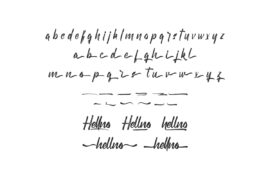 abcdefghijklmnopqrstuvwxyz
abcdefghijkl
mnopqrstuvwxyz
Hellno Hellno hellno
hellno hellno